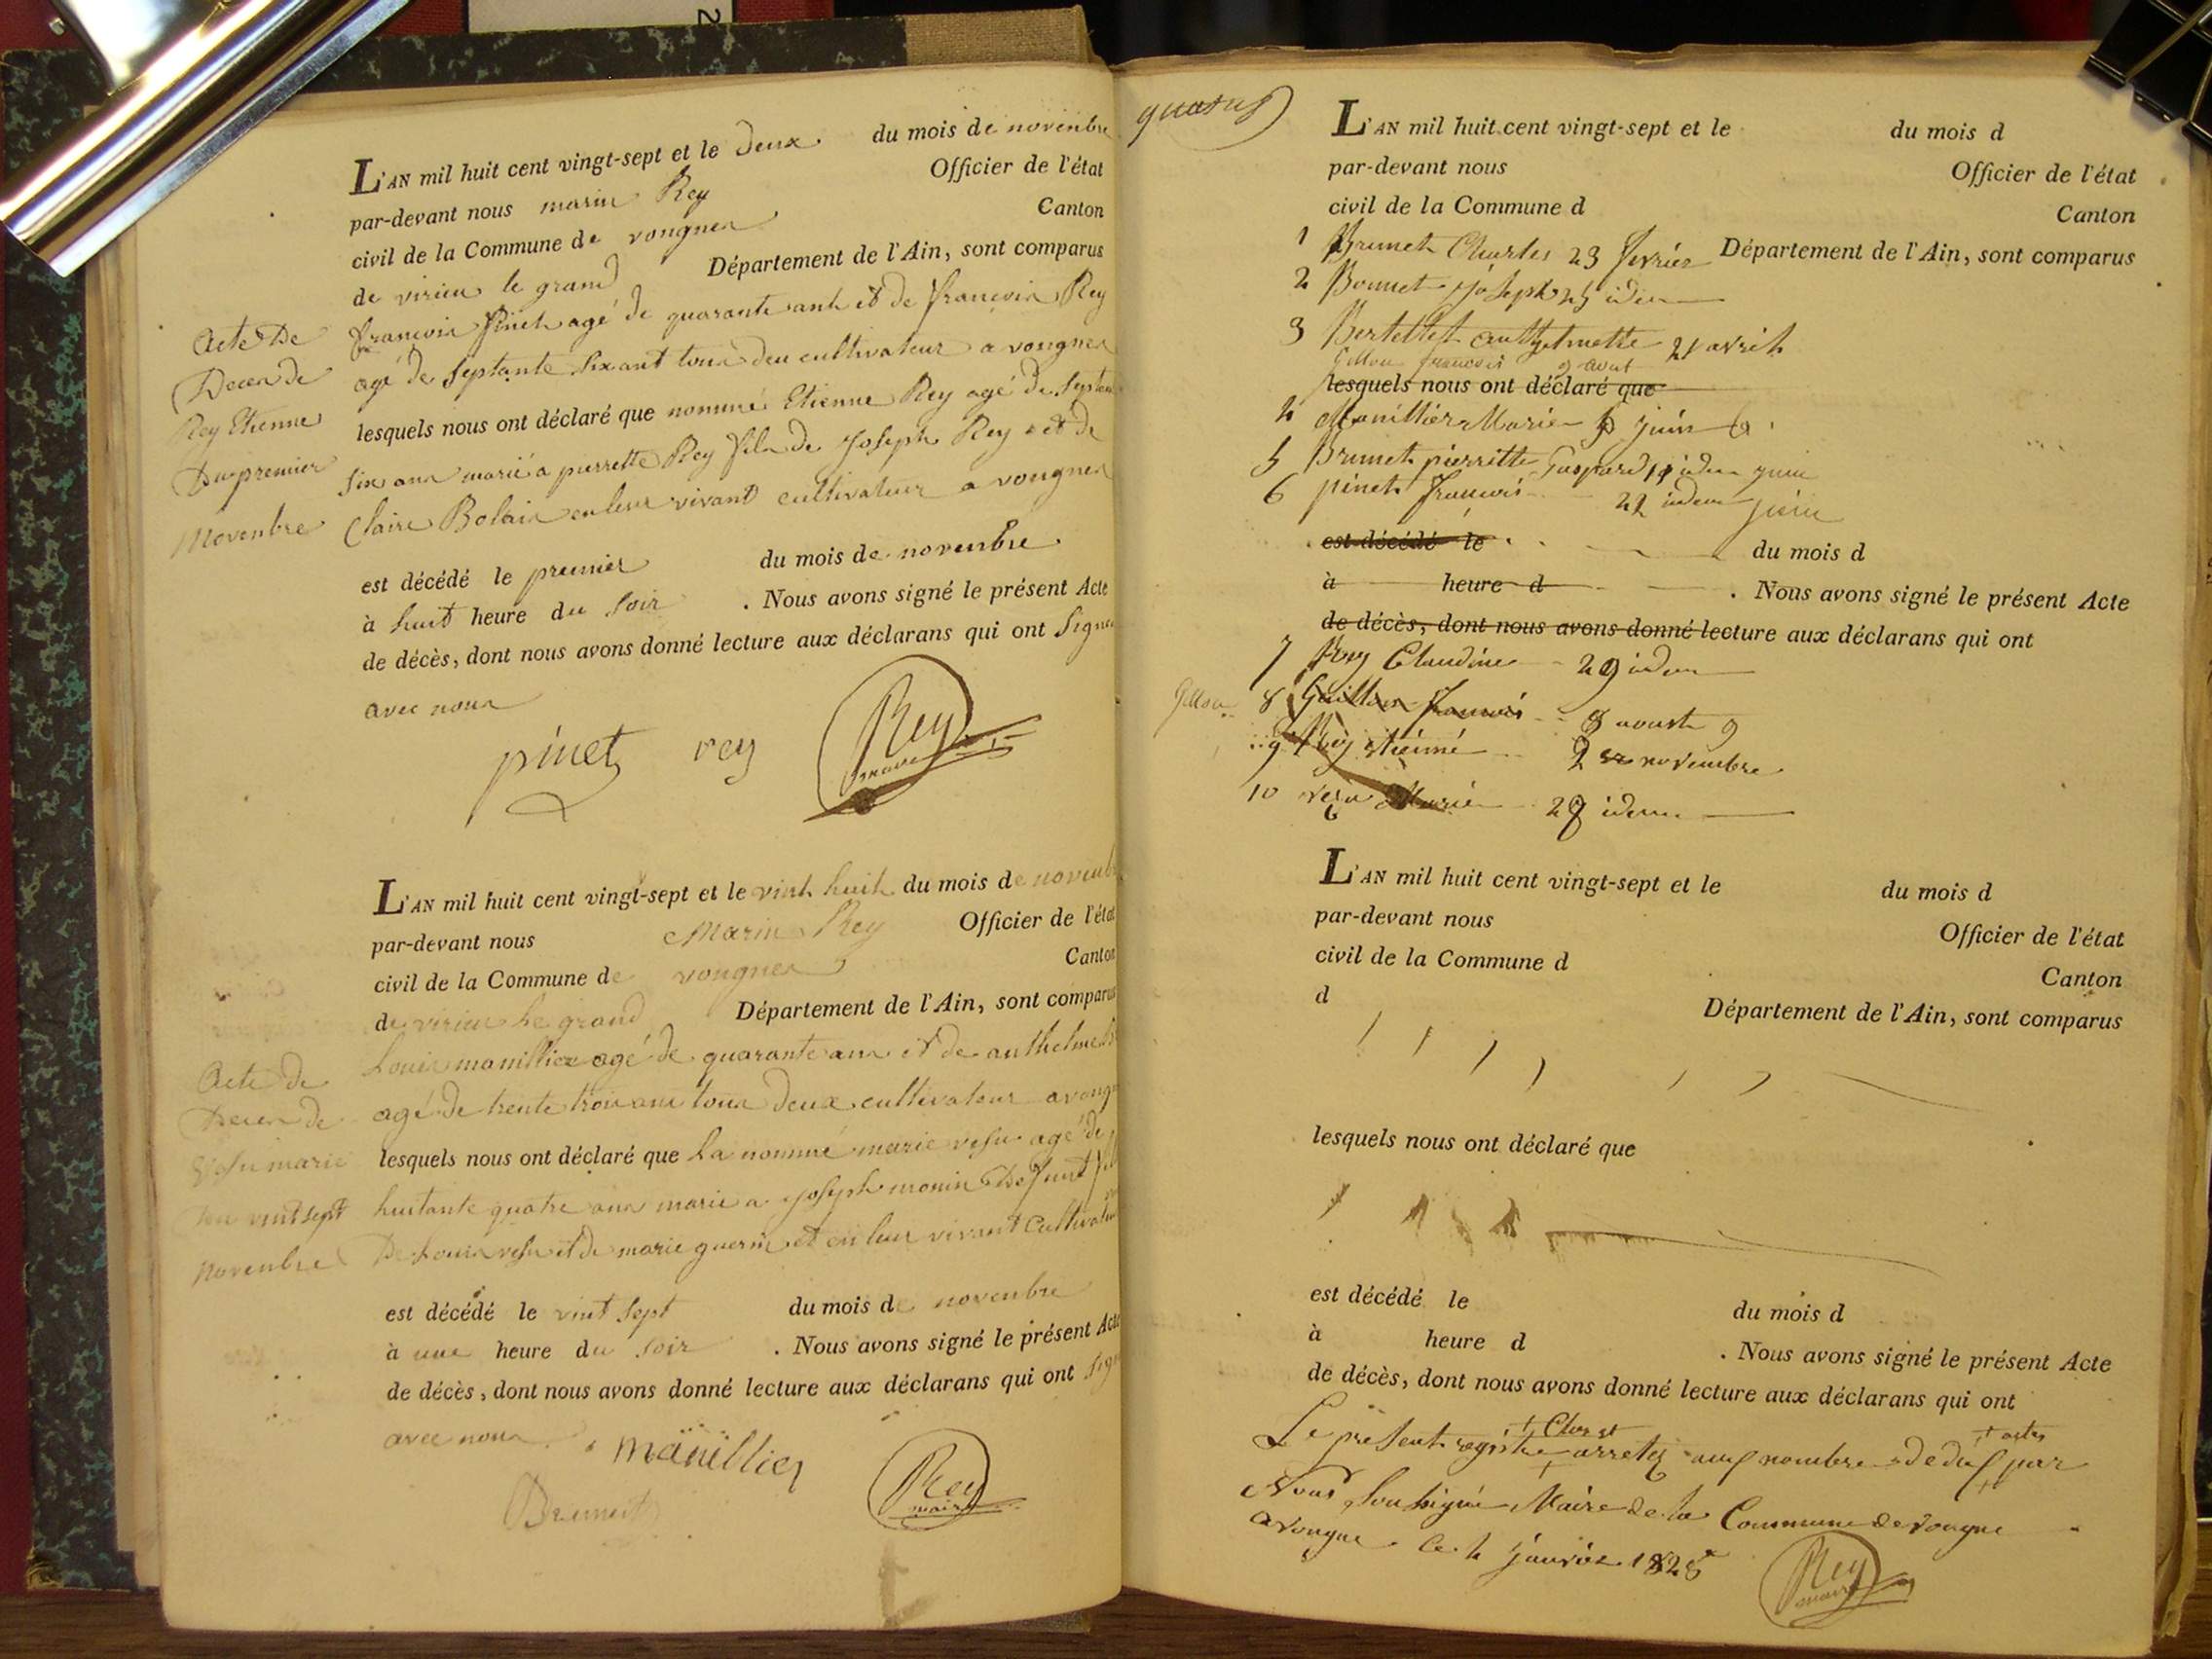 2
L'AN mil huit cent vingt-sept et le deux du mois de novenbre
par-devant nous marin Rey Officier de l'état
civil de la Commune de vongnes Canton
de virieu le grand Département de l'Ain, sont comparus
francois pinet agé de quarante ant et de francois Rey
agé de septante six ant tous deu cultivateur a vongnes
lesquels nous ont déclaré que nommé Etienne Rey agé de septan
six ans marié a pierrette Rey fils de Joseph Rey et de
Claire Bolain en leur vivant cultivateur a vongnes
est décédé le premier du mois de novenbre
à huit heure du soir . Nous avons signé le présent Acte
de décès, dont nous avons donné lecture aux déclarans qui ont signé
avec nous
pinet rey Rey maire
Acte De
Deces de
Rey Etienne
Du premier
Novenbre
L'AN mil huit cent vingt-sept et le vint huit du mois de novenb
par-devant nous Marin Rey Officier de l'état
civil de la Commune de vongnes Canton
de virieu le grand Département de l'Ain, sont comparus
Louis manillier agé de quarante ans et de anthelme
agé de trente trois ans tous deux cultivateur a vong
lesquels nous ont déclaré que La nommé marie vesu agé de
huitante quatre ans marie a joseph monin Defunt
De Louis vesu et de marie guerin et en leur vivant Cultivateur
est décédé le vint sept du mois de novenbre
à une heure du soir . Nous avons signé le présent Acte
de décès, dont nous avons donné lecture aux déclarans qui ont sign
avec nous
manillier
Brunet Rey maire
Acte de
Deces de
Vesu marie
du vint sept
novenbre
L'AN mil huit cent vingt-sept et le du mois d
par-devant nous Officier de l'état
civil de la Commune d Canton
Département de l'Ain, sont comparus
1 Brunet Charles 23 fevrier
2 Bonnet joseph 25 idem
3 Bertettet anthelmette 21 avril
Gillou francois 9 aout
lesquels nous ont déclaré que
4 Manillier Marie juin
5 Brunet pierrette Gaspard idem juin
6 pinet francois 22 idem juin
est décédé le du mois d
à heure d . Nous avons signé le présent Acte
de décès, dont nous avons donné lecture aux déclarans qui ont
7 Rey Claudine 29 idem
Gillou 8 Guillou francois 8 aoust 9
9 Rey etienne 2 novembre
10 vesu Marie 28 idem
L'AN mil huit cent vingt-sept et le du mois d
par-devant nous Officier de l'état
civil de la Commune d Canton
d Département de l'Ain, sont comparus
lesquels nous ont déclaré que
est décédé le du mois d
à heure d . Nous avons signé le présent Acte
de décès, dont nous avons donné lecture aux déclarans qui ont
+ Clos et + actes
Le present registre arrete au nombre de dix par
Nous soussigné Maire de la Commune de vongne
a vongne Ce 4 janvier 1828
Rey maire